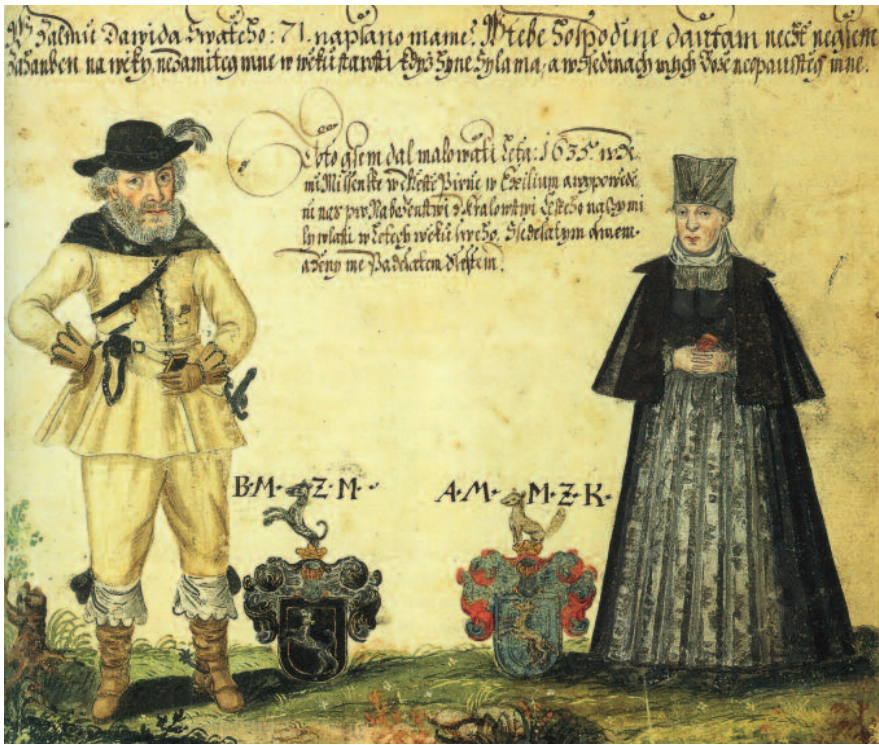 Žalmu Dawida Swateho: 71. napsano mame: W tebe Hospodine daufam necht negsem
zahanben na weky, nezamiteg mne w weku starosti když hyne Syla ma, a w Ssedinach mych Bože neopaussteg mne.
Toto gsem dal malowati Leta: 1635. w Ze-
mi Missenske w Miestie Pirnie w Exilium a wypowede-
ni nas pro Naboženstwi z Kralowstwi Czeskeho
ly wlasti w Letech weku sweho, Ssedesatym
a ženy me Padesatem Ssestem.
B·M· Z·M·
A·M· M·Z·K·